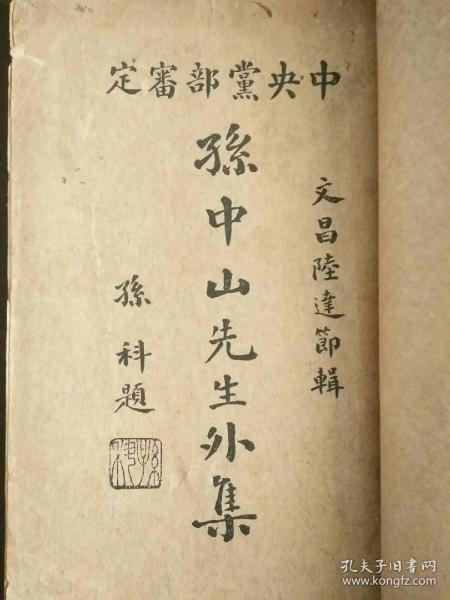 中央黨部審定
文昌陸達節輯
孫中山先生外集
孫科題
孔夫子旧书网
www.kongfz.com